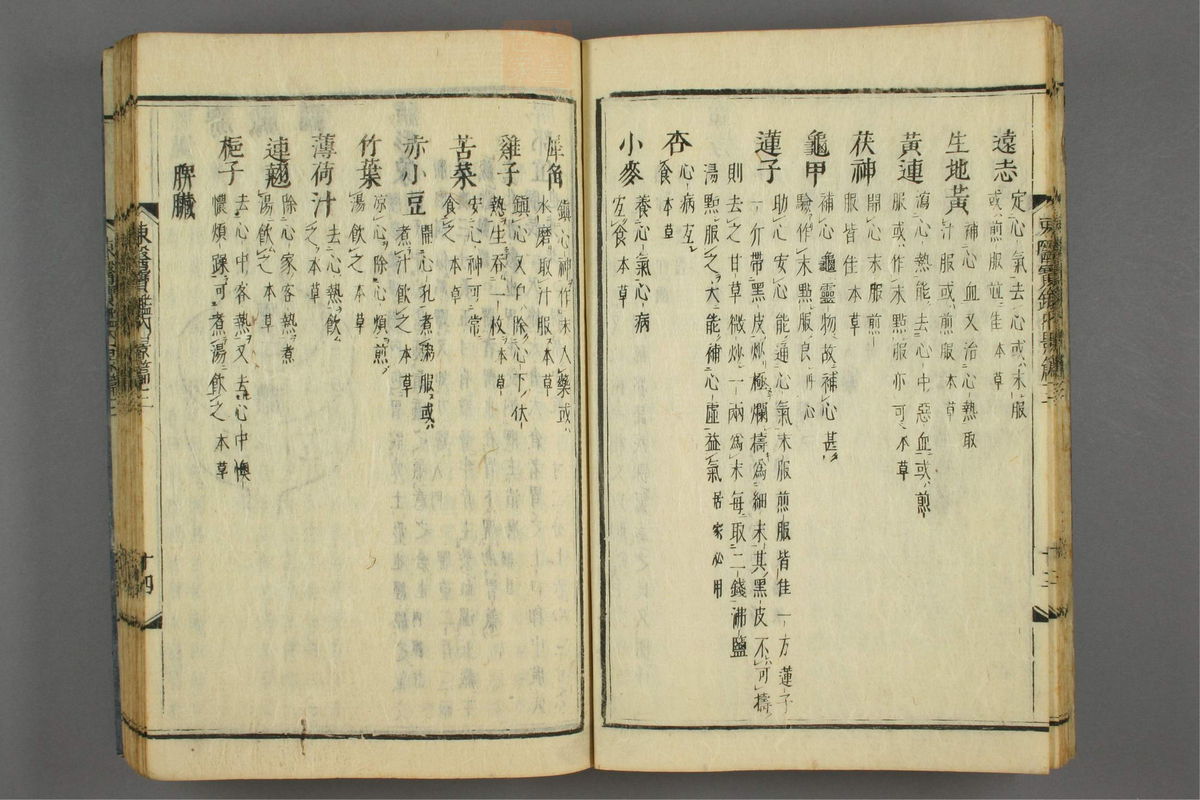 遠志 定心氣去心或末服
或煎服並佳本草
生地黃 補心血又治心熱取
汁服或煎服本草
黃連 瀉心熱能去心中惡血或煎
服或作末點服亦可本草
茯神 開心末服煎
服皆佳本草
龜甲 補心龜靈物故補心甚
驗作末點服良
蓮子 助心安心能通心氣末服煎服皆佳一方蓮子
一斤帶黑皮炒極爛擣爲細末其黑皮不可擣
則去之甘草微炒一兩爲末每取二錢沸鹽
湯點服之大能補心虛益氣 居家必用
杏 心病宜
食本草
小麥 養心氣心病
宜食本草
犀角 鎭心神作末入藥或
水磨取汁服本草
雞子 鎭心又卵除心下伏
熱生吞一枚本草
苦菜 安心神可常
食之本草
赤小豆 開心孔煮粥服或
煮汁飮之本草
竹葉 凉心除心煩煎
湯飮之本草
薄荷汁 去心熱飮
之本草
連翹 除心家客熱煮
湯飮之本草
梔子 去心中客熱又去心中懊
憹煩躁可煮湯飮之本草
脾臟
東醫寶鑑內景篇三 十三
東醫寶鑑內景篇三 十四